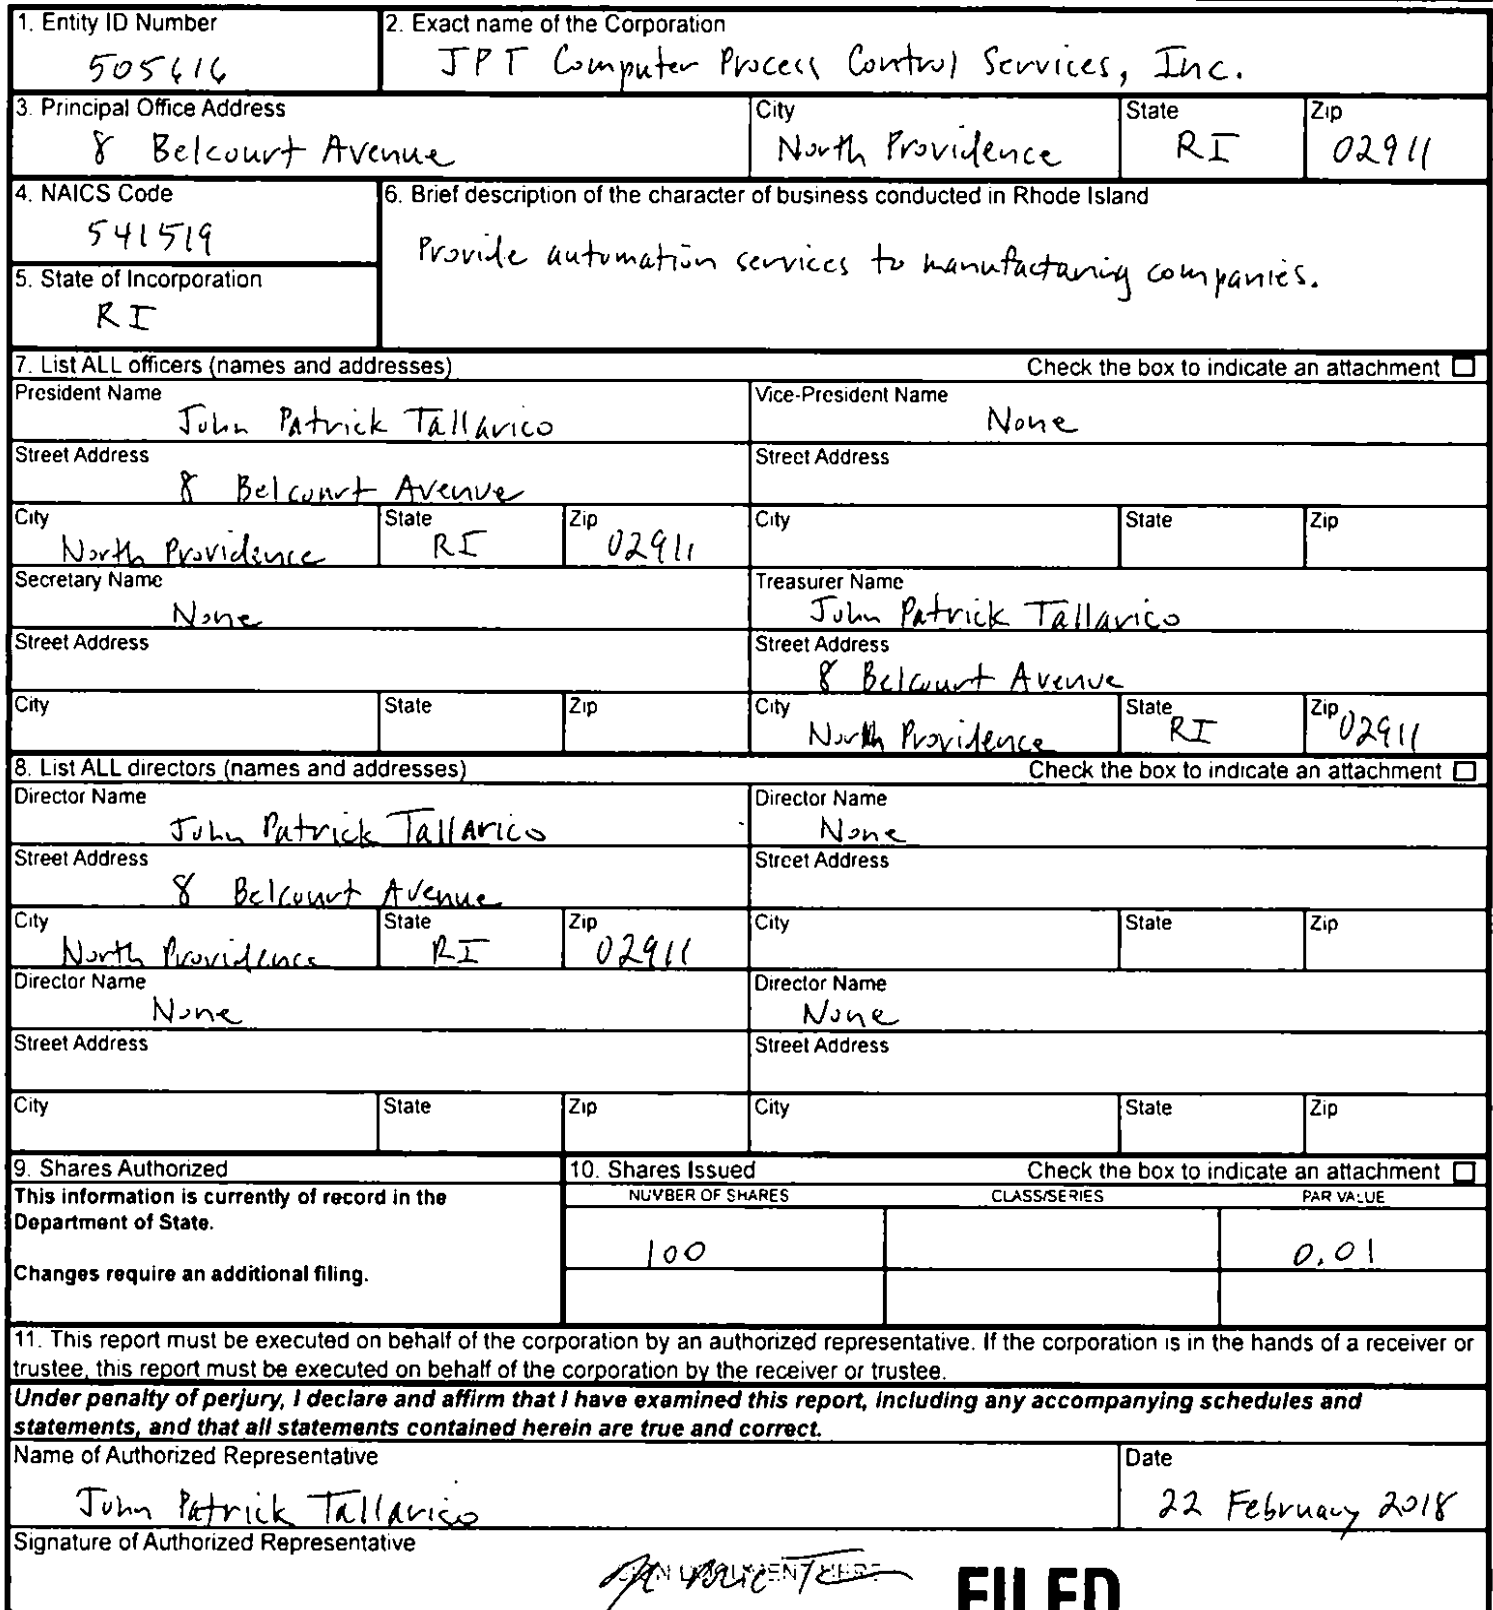 1. Entity ID Number
505616
2. Exact name of the Corporation
JPT Computer Process Control Services, Inc.
3. Principal Office Address
8 Belcourt Avenue
City
North Providence
State
RI
Zip
02911
4. NAICS Code
541519
5. State of Incorporation
RI
6. Brief description of the character of business conducted in Rhode Island
Provide automation services to manufacturing companies.
7. List ALL officers (names and addresses) Check the box to indicate an attachment
President Name
John Patrick Tallarico
Vice-President Name
None
Street Address
8 Belcourt Avenue
Street Address
City
North Providence
State
RI
Zip
02911
City
State
Zip
Secretary Name
None
Treasurer Name
John Patrick Tallarico
Street Address
Street Address
8 Belcourt Avenue
City
State
Zip
City
North Providence
State
RI
Zip
02911
8. List ALL directors (names and addresses) Check the box to indicate an attachment
Director Name
John Patrick Tallarico
Director Name
None
Street Address
8 Belcourt Avenue
Street Address
City
North Providence
State
RI
Zip
02911
City
State
Zip
Director Name
None
Director Name
None
Street Address
Street Address
City
State
Zip
City
State
Zip
9. Shares Authorized
This information is currently of record in the
Department of State.
Changes require an additional filing.
10. Shares Issued Check the box to indicate an attachment
NUMBER OF SHARES CLASS/SERIES PAR VALUE
100 0.01
11. This report must be executed on behalf of the corporation by an authorized representative. If the corporation is in the hands of a receiver or
trustee, this report must be executed on behalf of the corporation by the receiver or trustee.
Under penalty of perjury, I declare and affirm that I have examined this report, including any accompanying schedules and
statements, and that all statements contained herein are true and correct.
Name of Authorized Representative
John Patrick Tallarico
Date
22 February 2018
Signature of Authorized Representative
FILED